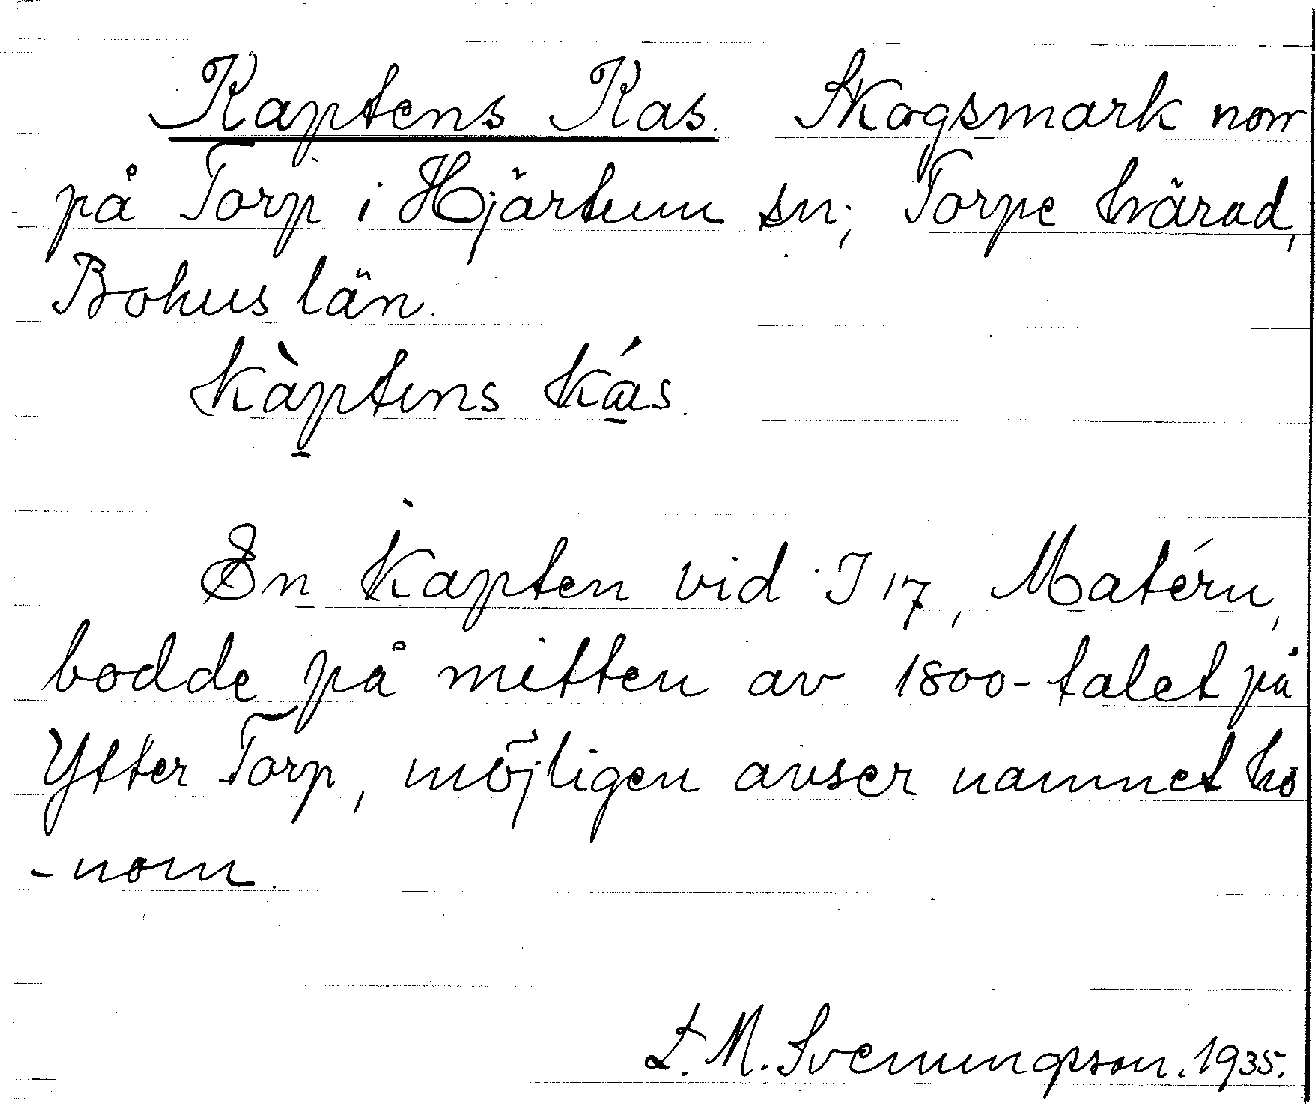 Kaptens Kas. Skogsmark norr
på Torp i Hjärtum sn; Torpe härad,
Bohus län.
Kàptens Kás.
En Kapten vid I 17, Matérn,
bodde på mitten av 1800-talet på
Ytter Torp, möjligen avser namnet ho
-nom.
L. M. Svenungsson. 1935.